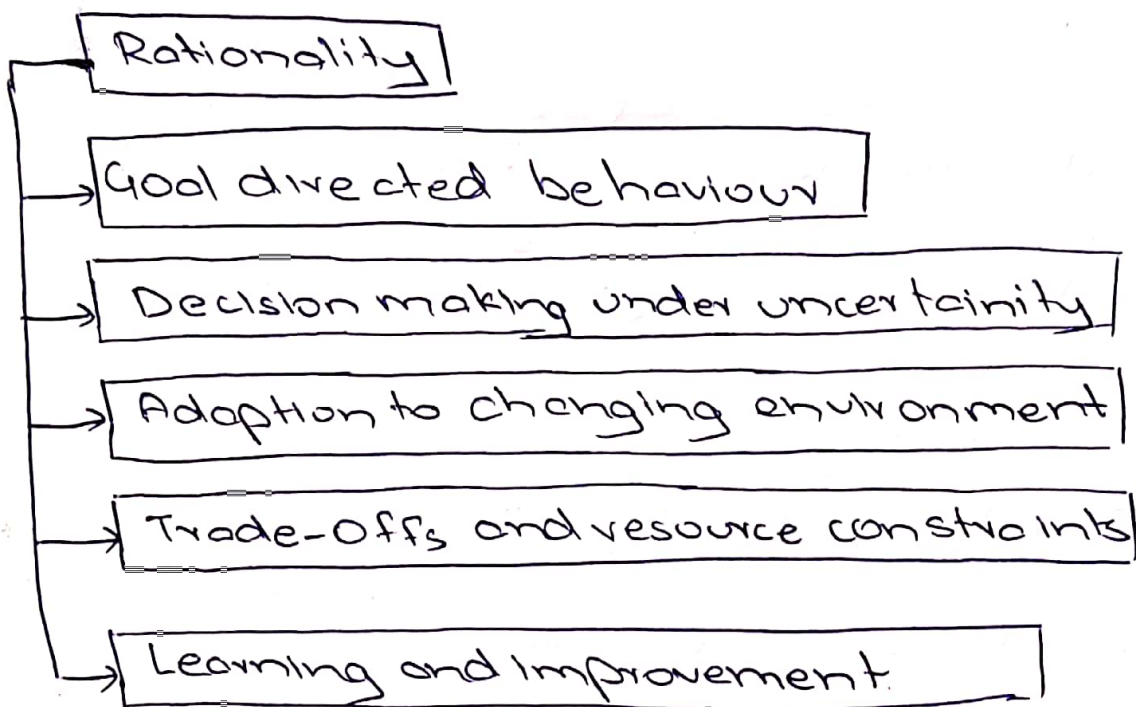 Rationality
Goal directed behaviour
Decision making under uncertainity
Adaption to changing environment
Trade-Offs and resource constraints
Learning and improvement.